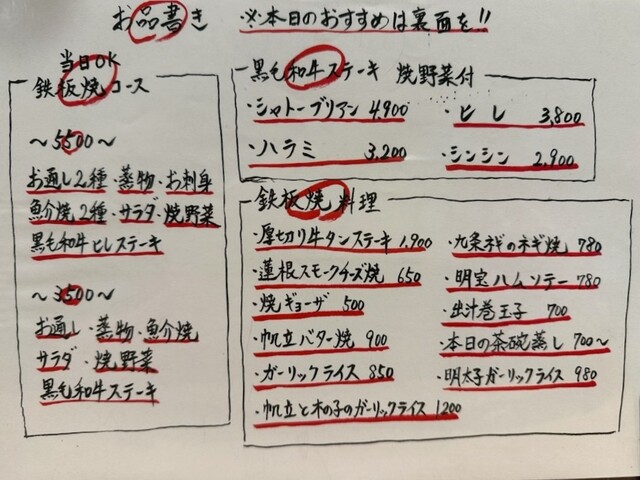 お品書き ※本日のおすすめは裏面を!!
当日OK
鉄板焼コース
〜5500〜
お通し2種・蒸物・お刺身
魚介焼2種・サラダ・焼野菜
黒毛和牛ヒレステーキ
〜3500〜
お通し・蒸物・魚介焼
サラダ・焼野菜
黒毛和牛ステーキ
黒毛和牛ステーキ 焼野菜付
・シャトーブリアン 4,900
・ヒレ 3,800
・ハラミ 3,200
・シンシン 2,900
鉄板焼料理
・厚切り牛タンステーキ 1,900
・蓮根スモークチーズ焼 650
・焼ギョーザ 500
・帆立バター焼 900
・ガーリックライス 850
・帆立と木の子のガーリックライス 1200
・九条ネギのネギ焼 780
・明宝ハムソテー 780
・出汁巻玉子 700
・本日の茶碗蒸し 700〜
・明太子ガーリックライス 980